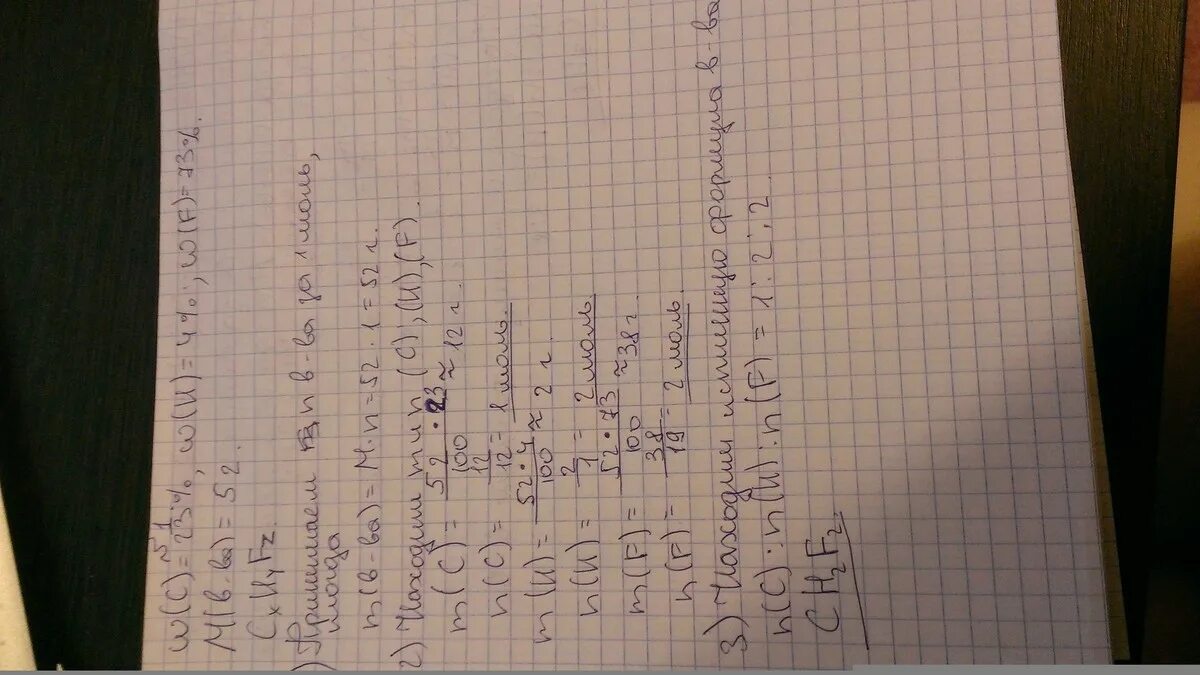 №1
w(C)=23%, w(H)=4%; w(F)=73%.
M(в-ва)=52.
CxHyFz
1) Принимаем n в-ва за 1 моль,
тогда
m(в-ва)=M·n=52·1=52 г.
2) Находим m и n (C),(H),(F).
m(C)=52·23/100≈12 г.
n(C)=12/12=1 моль.
m(H)=52·4/100≈2 г.
n(H)=2/1=2 моль
m(F)=52·73/100≈38 г.
n(F)=38/19=2 моль.
3) Находим истинную формулу в-ва
n(C):n(H):n(F)=1:2:2
CH₂F₂